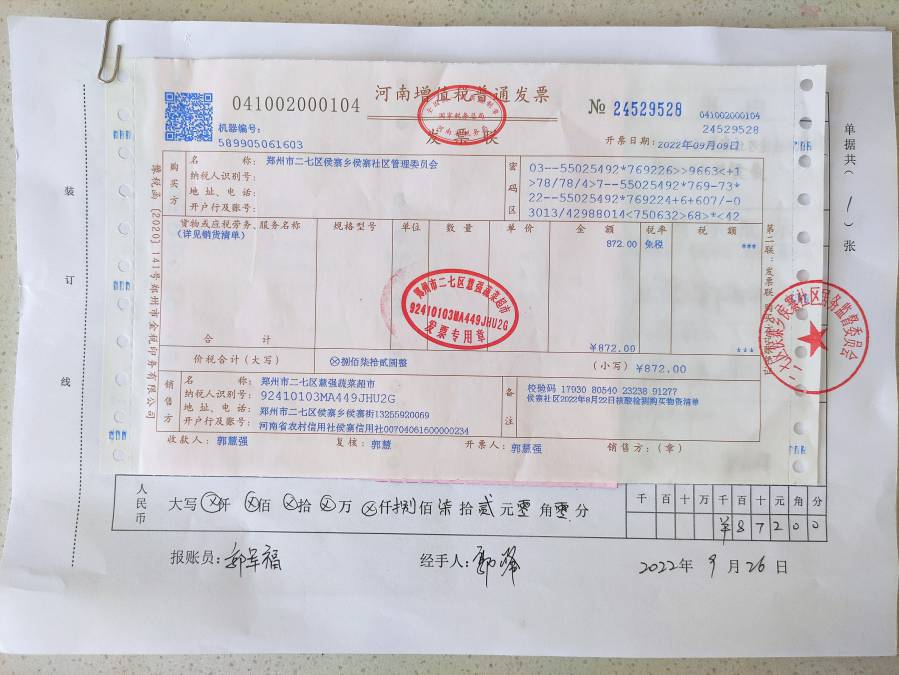 河南增值税普通发票
041002000104
№ 24529528
041002000104
24529528
机器编号:
589905061603
开票日期: 2022年09月09日
国家税务总局
购买方
名 称: 郑州市二七区侯寨乡侯寨社区管理委员会
纳税人识别号:
地 址、电 话:
开户行及账号:
密码区
03--55025492*769226>>9663<+1
>78/78/4>7--55025492*769-73*
22--55025492*769224+6+607/-0
3013/42988014<750632>68>*<42
货物或应税劳务、服务名称 规格型号 单位 数 量 单 价 金 额 税率 税 额
(详见销货清单) 872.00 免税 ***
合 计 ¥872.00 ***
价税合计(大写) ⊗捌佰柒拾贰圆整 (小写) ¥872.00
销售方
名 称: 郑州市二七区慧强蔬菜超市
纳税人识别号: 92410103MA449JHU2G
地 址、电 话: 郑州市二七区侯寨乡侯寨街13255920069
开户行及账号: 河南省农村信用社侯寨信用社00704061600000234
备注
校验码 17930 80540 23238 91277
侯寨社区2022年8月22日核酸检测购买物资清单
收款人: 郭慧强 复核: 郭慧 开票人: 郭慧强 销售方:(章)
郑州市二七区慧强蔬菜超市
92410103MA449JHU2G
发票专用章
第二联:发票联
税总函[2020]141号郑州市金税印务有限公司
装订线
单据共(1)张
人民币
大写ⓧ仟ⓧ佰ⓧ拾ⓧ万ⓧ仟捌佰柒拾贰元零角零分
千 百 十 万 千 百 十 元 角 分
¥ 8 7 2 0 0
报账员: 经手人: 2022年 9 月 26 日